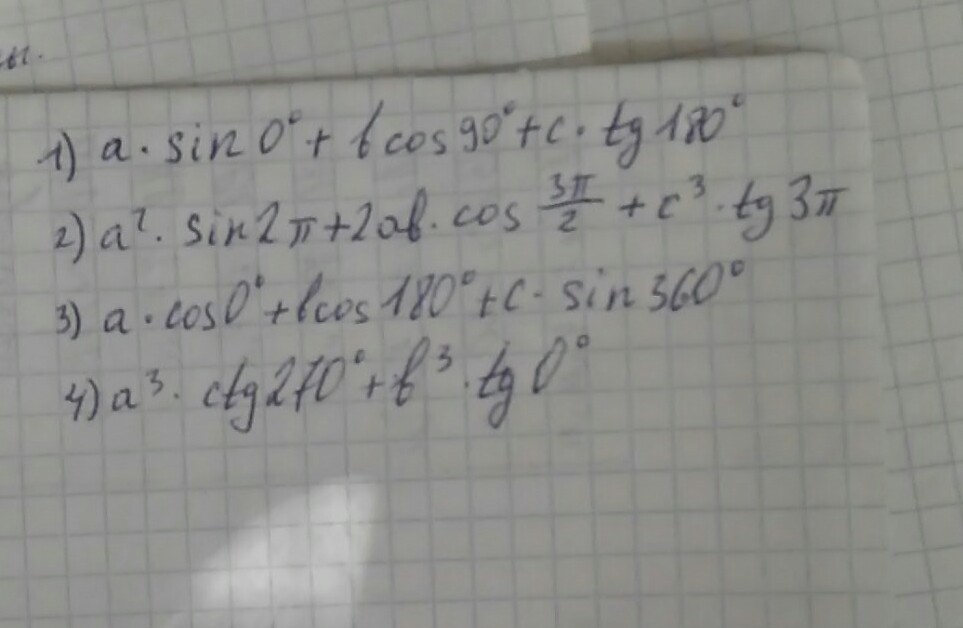 1) a · sin 0° + b cos 90° + c · tg 180°
2) a² · sin 2π + 2ab · cos 3π/2 + c³ · tg 3π
3) a · cos 0° + b cos 180° + c · sin 360°
4) a³ · ctg 270° + b³ · tg 0°